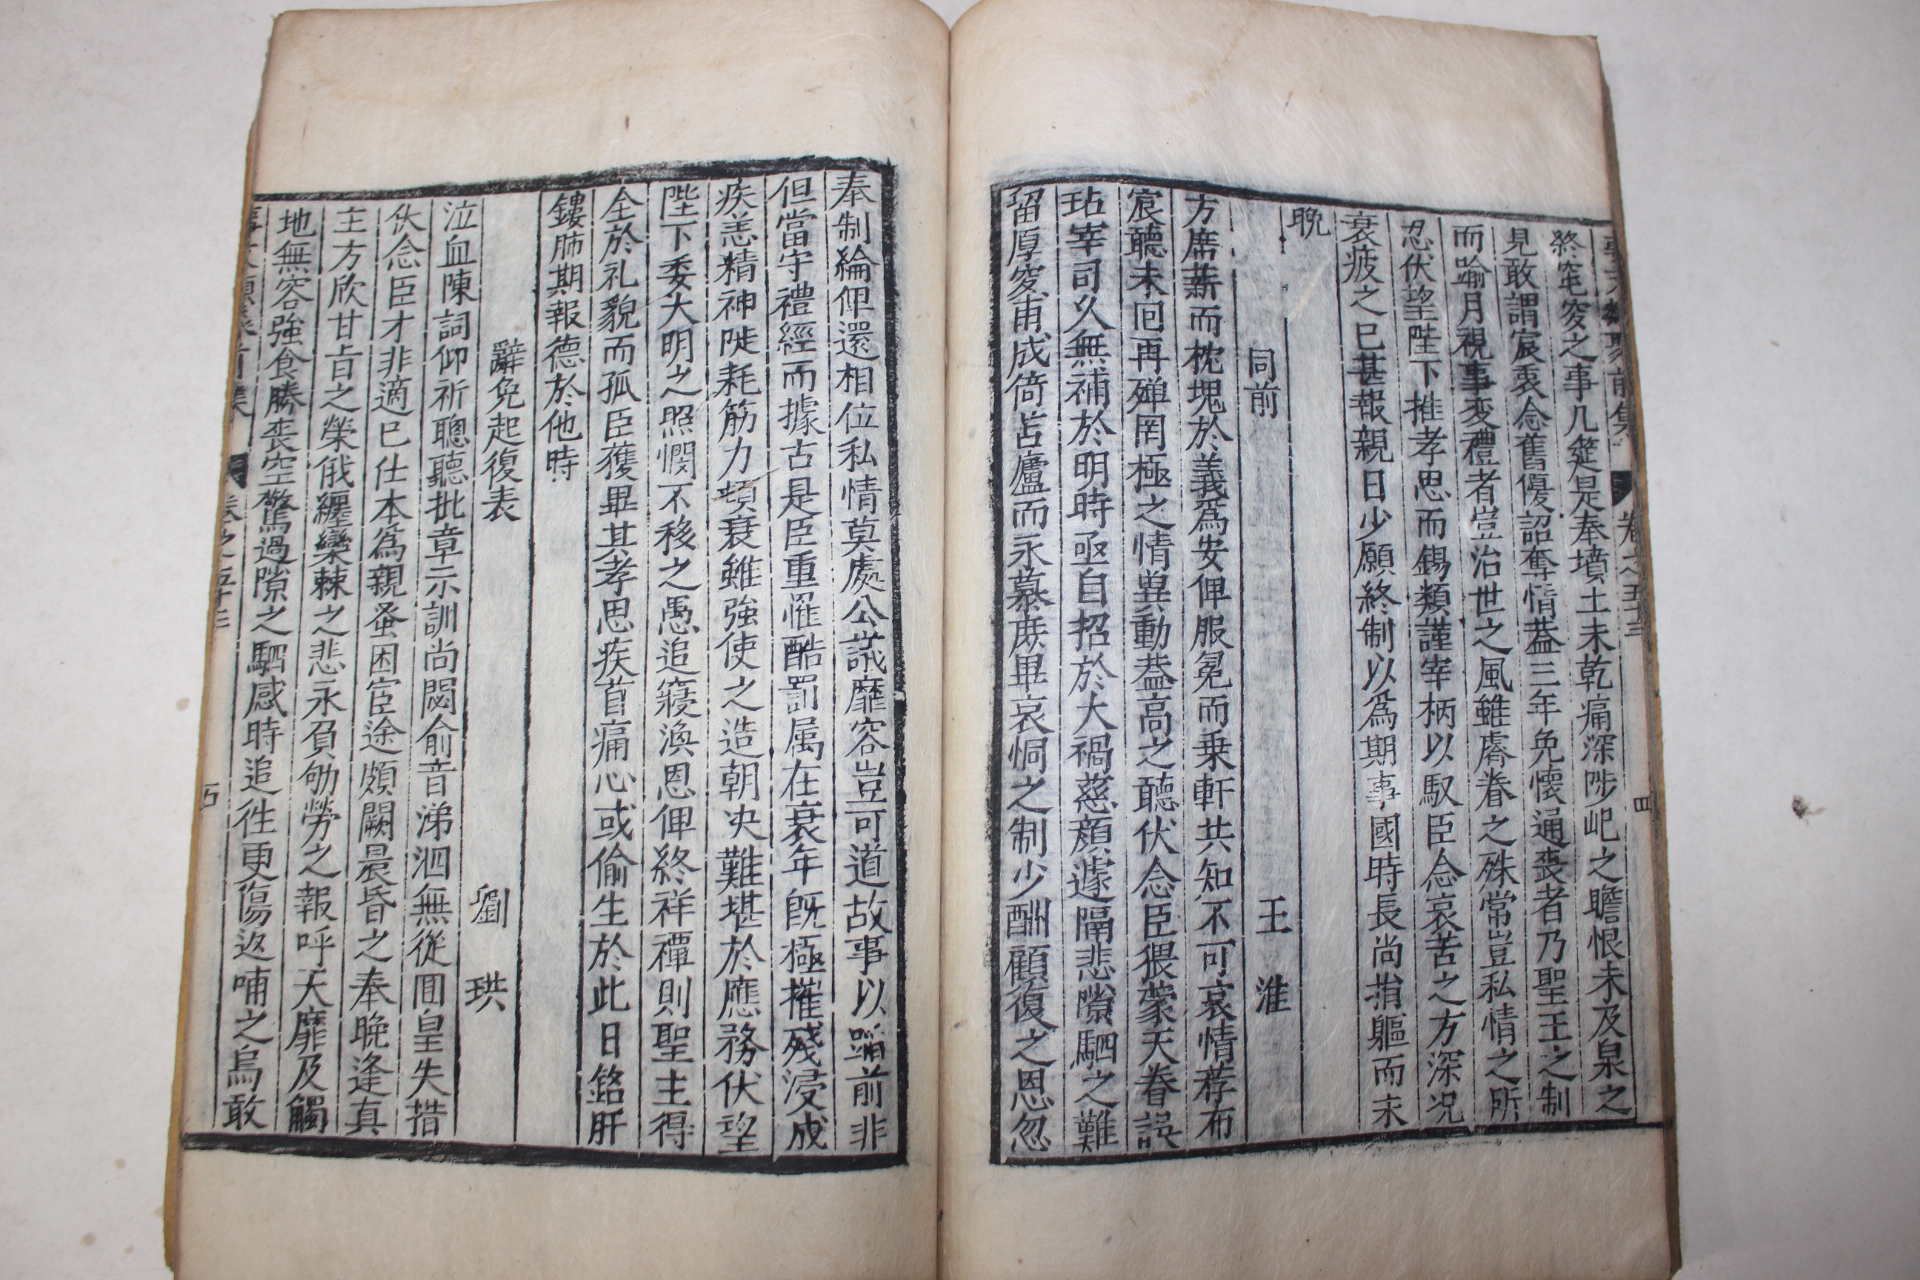 終窀穸之事几筵是奉墳土未乾痛深陟屺之瞻恨未及泉之
見敢謂宸衷念舊優詔奪情葢三年免懷通喪者乃聖王之制
而喻月視事変禮者豈治世之風雖膚眷之殊常豈私情之所
忍伏望陛下推孝思而錫類謹宰柄以馭臣念哀苦之方深况
衰疲之已甚報親日少願終制以為期事國時長尚捐軀而未
晩
同前 王淮
方席薪而枕塊於義為安俾服冕而乗軒共知不可哀情荐布
宸聽未囘再殫罔極之情兾動葢高之聽伏念臣猥蒙天眷誤
玷宰司乆無補於明時亟自招於大禍慈顔遽隔悲隙駟之難
留厚穸甫成倚苫廬而永慕庻畢哀恫之制少酬顧復之恩忽
奉制綸俾還相位私情莫處公議靡容豈可道故事以啚前非
但當守禮經而據古是臣重罹酷罰属在衰年旣極摧殘浸成
疾恙精神陡耗筋力頓衰雖強使之造朝决難堪於應務伏望
陛下委大明之照憫不移之愚追寢渙恩俾終祥禫則聖主得
全於礼貌而孤臣獲畢其孝思疾首痛心或偷生於此日銘肝
鏤肺期報德於他時
辭免起復表 劉珙
泣血陳詞仰祈聰聽批章示訓尚閟俞音涕泗無從囬皇失措
伏念臣才非適巳仕本為親蚤困宦途頗闕晨昏之奉晩逢真
主方欣甘旨之榮俄纒欒棘之悲永負劬勞之報呼天靡及觸
地無容強食勝喪空驚過隙之駟感時追徃更傷返哺之烏敢